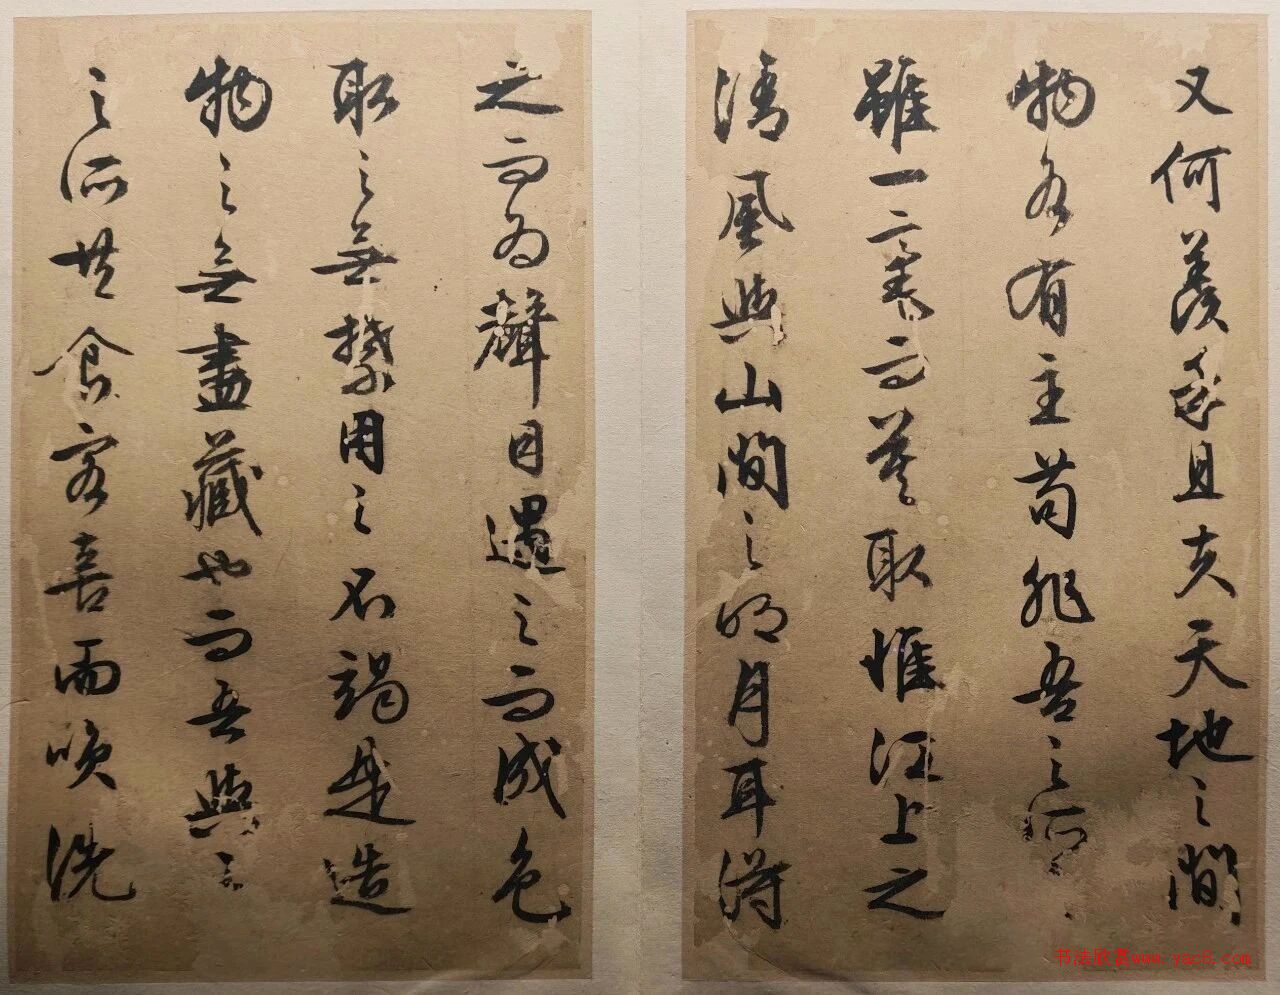 又何羨乎且夫天地之間
物各有主苟非吾之所
雖一毫而莫取惟江上之
清風與山間之明月耳得
之而為聲目遇之而成色
取之無禁用之不竭是造
物之無盡藏也而吾與
之所共食客喜而喚洗
书法欣赏www.yac8.com